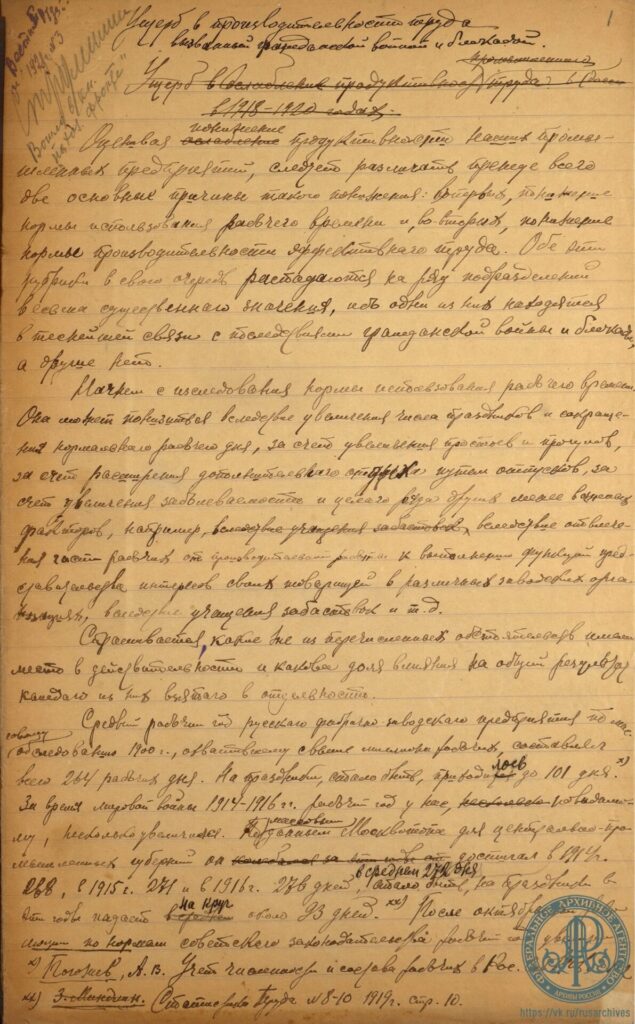 1
Вестник труда
1921 №3
Вошло в кн.
"На хоз. фронте"
Ущерб в производительности труда
вызванный гражданской войной и блокадой.
Ущерб в ослаблении продуктивности промышленного труда в
в 1918-1920 годах.
Оценивая ослабление понижение продуктивности наших промыш-
ленных предприятий, следует различать прежде всего
две основные причины такого понижения: во первых, понижение
нормы использования рабочего времени и, во вторых, понижение
нормы производительности эффективного труда. Обе эти
рубрики в свою очередь распадаются на ряд подразделений
весьма существенного значения, из одни из них находятся
в теснейшей связи с последствиями гражданской войны и блокады,
а другие нет.
Начнем с исследования нормы использования рабочего времени.
Она может понизиться вследствие увеличения числа праздников и сокраще-
ния нормального рабочего дня, за счет увеличения простоев и прогулов,
за счет расширения дополнительного отдыха путем отпусков, за
счет увеличения заболеваемости и целого ряда других менее важных
факторов, например, вследствие учащения забастовок, вследствие отвлече-
ния части рабочих от производительной работы к выполнению функций пред-
ставительства интересов своих товарищей в различных заводских орга-
низациях, вследствие учащения забастовок и т.д.
Спрашивается, какие же из перечисленных обстоятельств имели
место в действительности и какова доля влияния на общий результат
каждого из них взятого в отдельности.
Средний рабочий год русского фабрично заводского предприятия по мас-
совому обследованию 1900 г., охватившему свыше миллиона рабочих, составлял
всего 264 рабочих дня. На праздники, стало быть, приходилось до 101 дня. x)
За время мировой войны 1914-1916 гг. рабочий год у нас, несколько повидимо-
му, несколько увеличился. По массовым данным Москвотопа для центрально-про-
мышленных губерний он достигал в 1914 г.
268, в 1915 г. 271 и в 1916 г. 276 дней, в среднем 272 дня, стало быть, на праздники в
эти годы падает на круг около 93 дней. xx) После октябрьской
по нормам советского законодательства рабочий год
x) Погожев, А.В. Учет численности и состава рабочих в Рос.
xx) З. Миндлин. Статистика Труда № 8-10 1919 г. стр. 10.
ФЕДЕРАЛЬНОЕ АРХИВНОЕ АГЕНТСТВО
АРХИВЫ РОССИИ
https://vk.ru/rusarchives